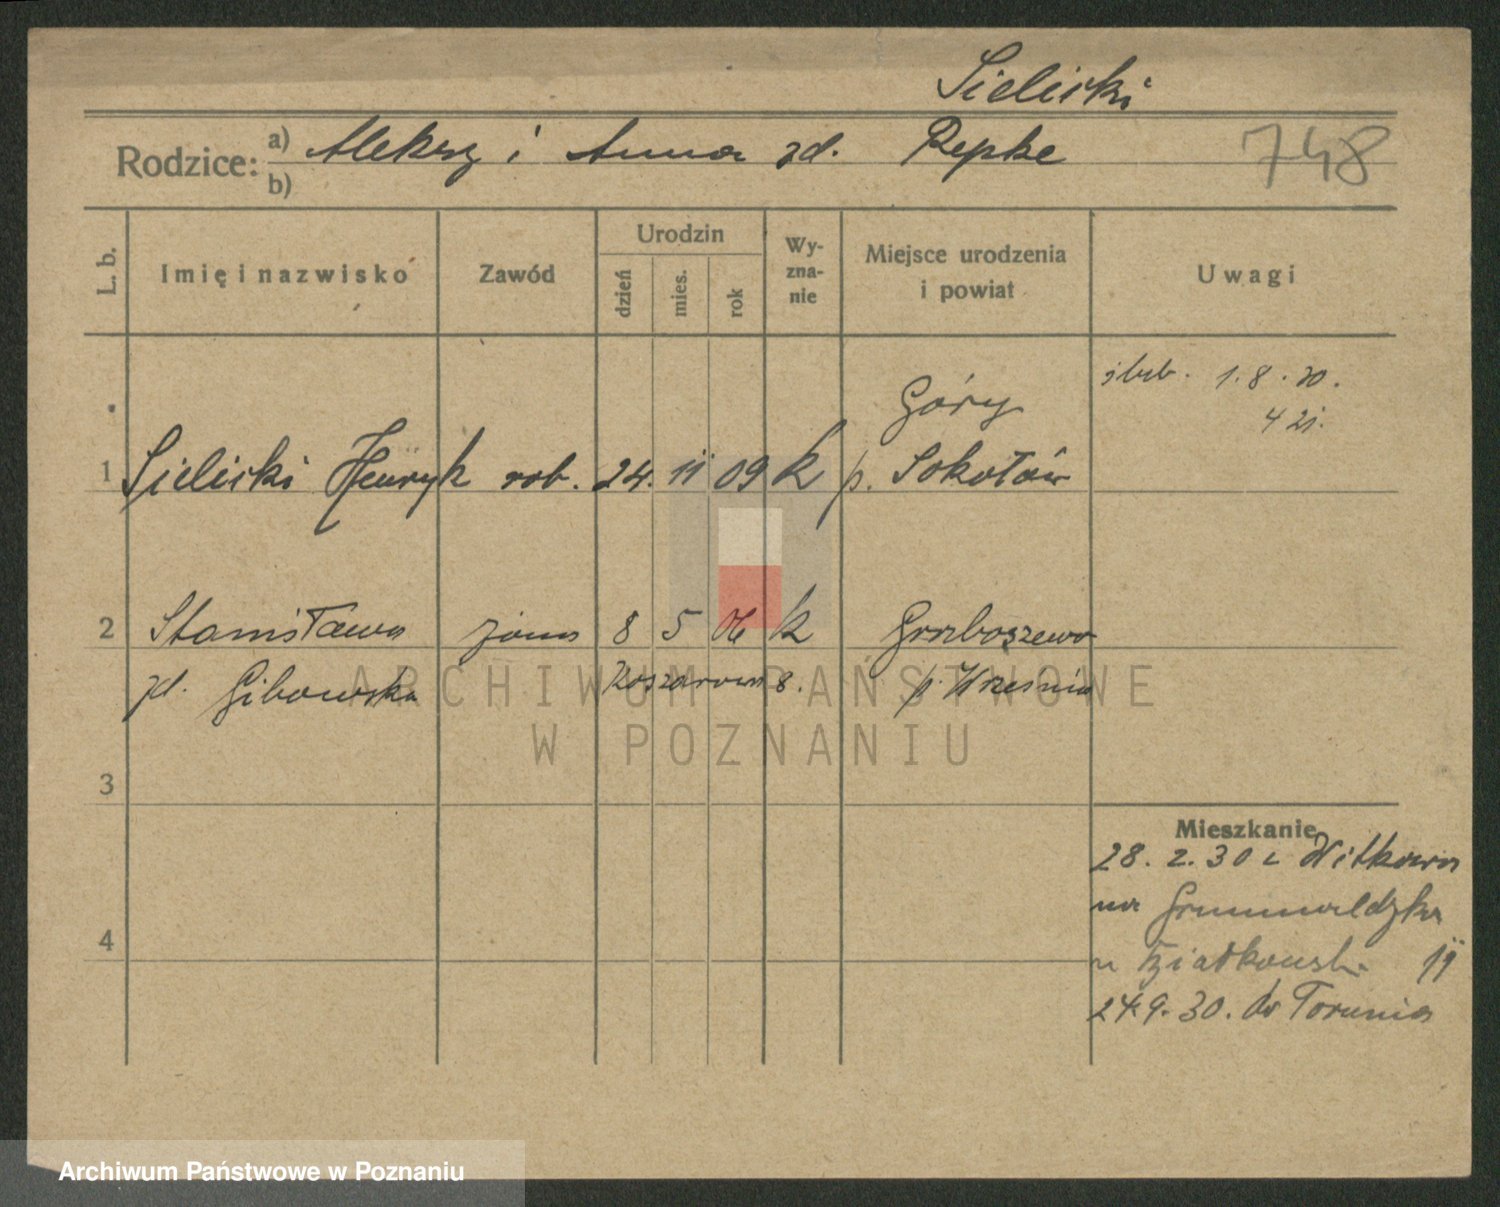 Sieliski
Rodzice: a) Aleksy i Anna zd. Repke
b)
748
L. b.
Imię i nazwisko
Zawód
Urodzin
dzień
mies.
rok
Wy-
zna-
nie
Miejsce urodzenia
i powiat
Uwagi
ślub. 1.8.30.
Góry
1 Sieliski Henryk rob. 24. 11 09 k p. Sokołów
2 Stanisława żona 8 5 06 k Grzboszewo
zd. Gibowska Koszarowa 8. p. Września
ARCHIWUM PAŃSTWOWE
W POZNANIU
3
Mieszkanie
28. 2. 30 z Witkowa
na Grunwaldzka
4
24.9.30. do Torunia
Archiwum Państwowe w Poznaniu